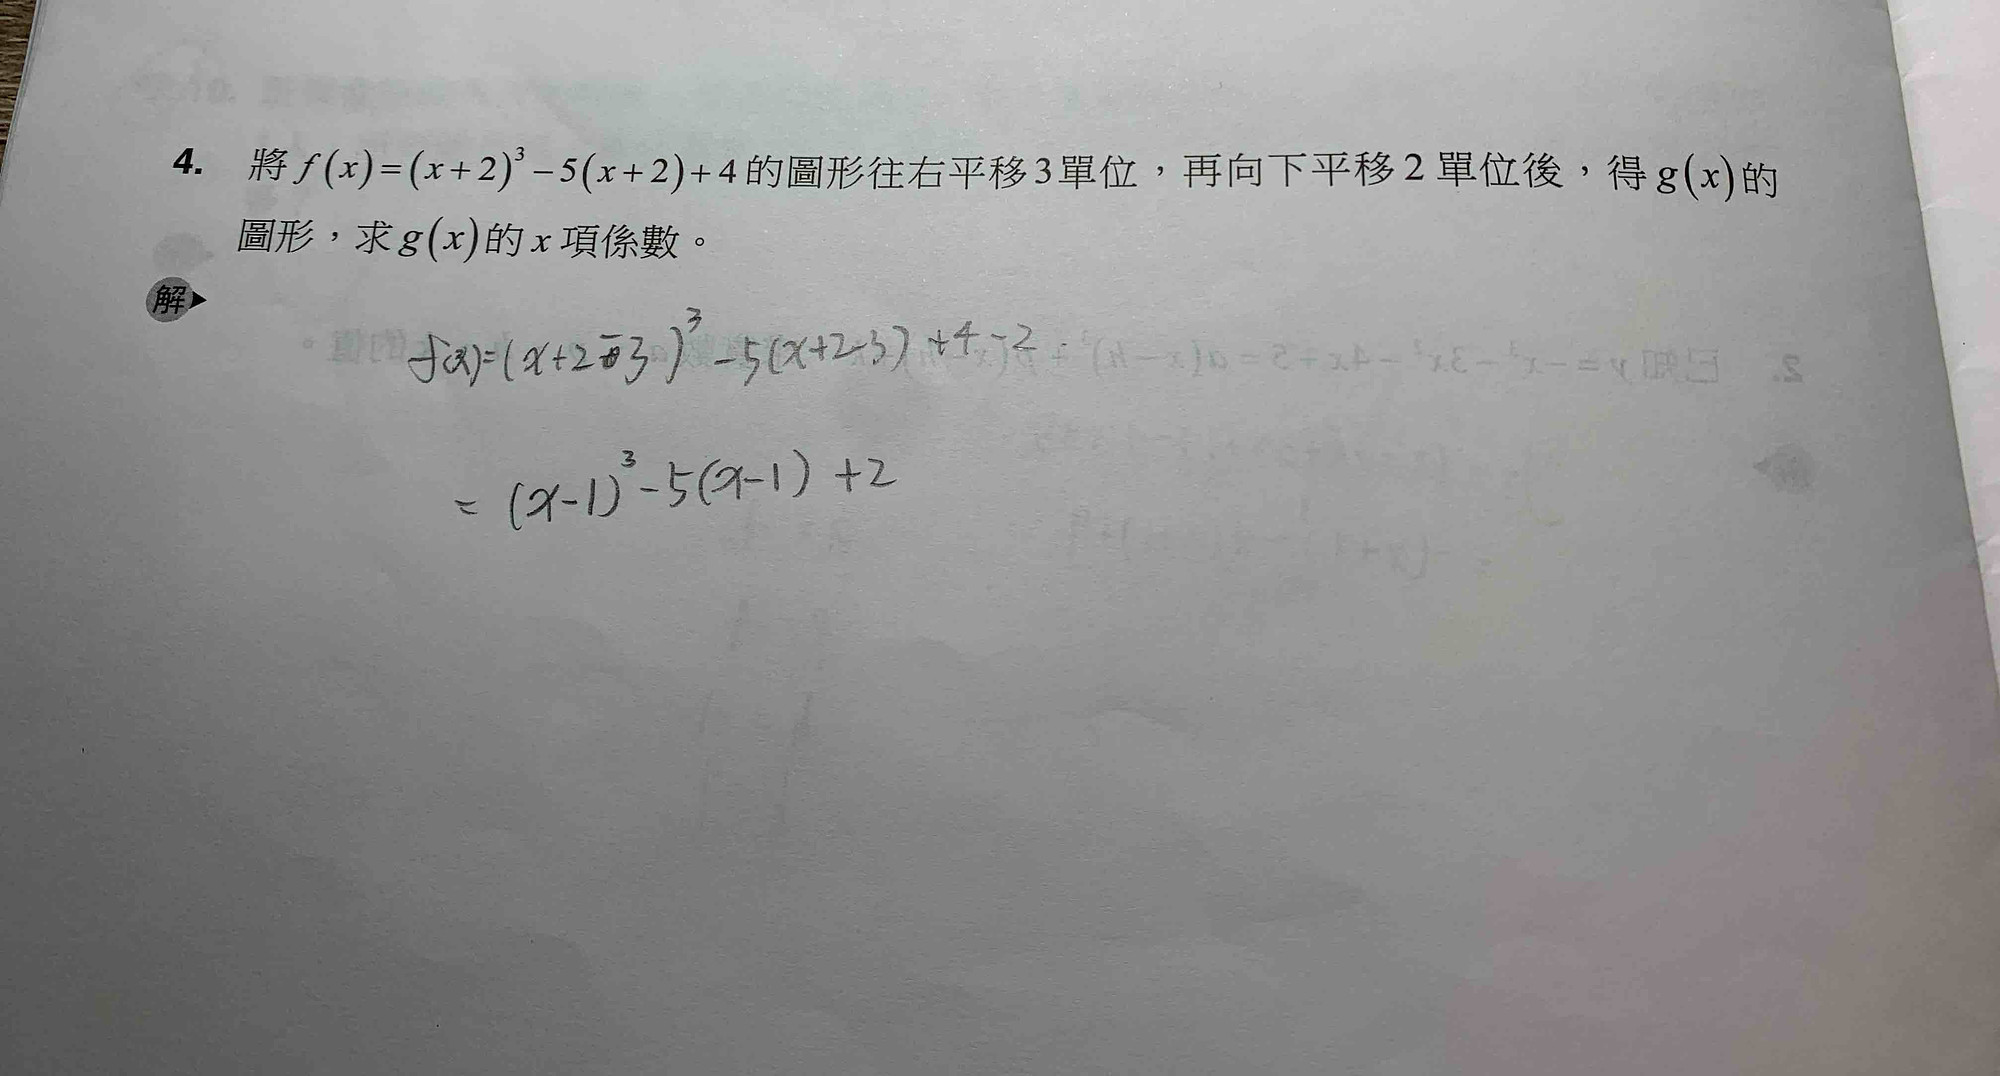 4. 將 f(x)=(x+2)³−5(x+2)+4 的圖形往右平移3單位，再向下平移 2 單位後，得 g(x) 的
圖形，求 g(x) 的 x 項係數。
解
f(x)=(x+2-3)³-5(x+2-3)+4-2
=(x-1)³-5(x-1)+2